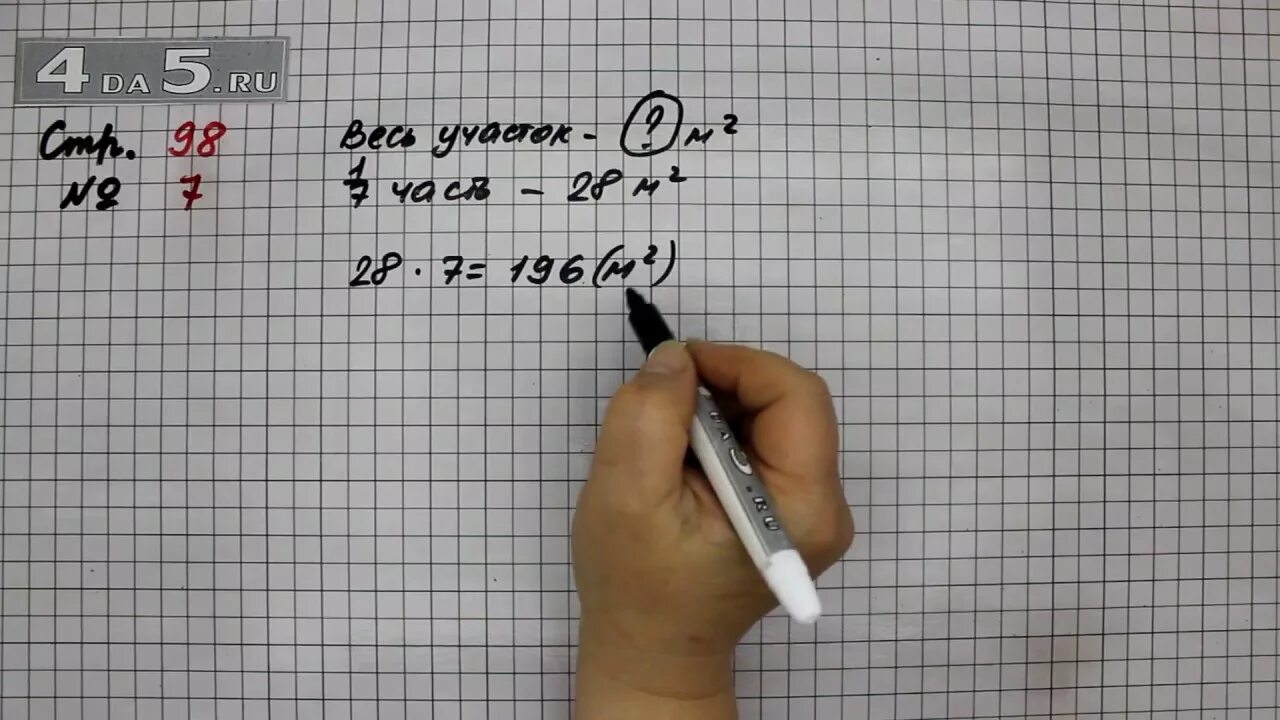 4DA5.RU
Стр. 98
№ 7
Весь участок - ? м²
1/7 часть - 28 м²
28 · 7 = 196 (м²)
DA5.RU